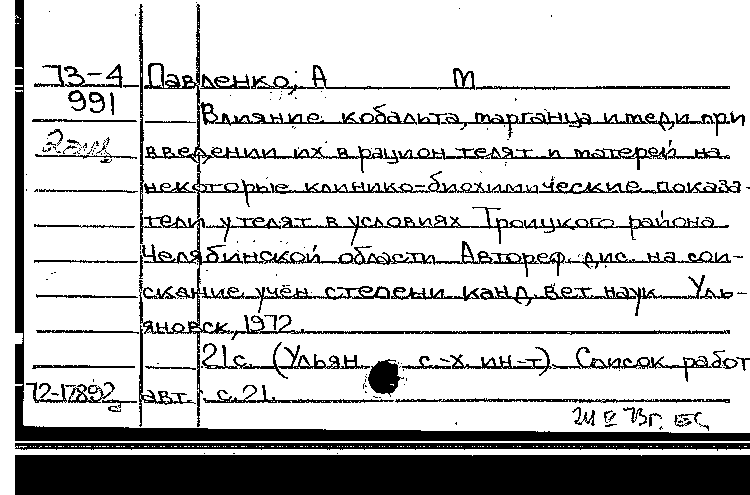 73-4 Павленко, А М
991 Влияние кобальта, марганца и меди при
2 введении их в рацион телят и матерей на
некоторые клинико-биохимические показа-
тели у телят в условиях Троицкого района
Челябинской области Автореф. дис. на сои-
скание учён степени канд. вет наук Уль-
яновск, 1972.
21 с. (Ульян с.-х. ин-т). Список работ
72-17892 авт. с. 21.
73г.